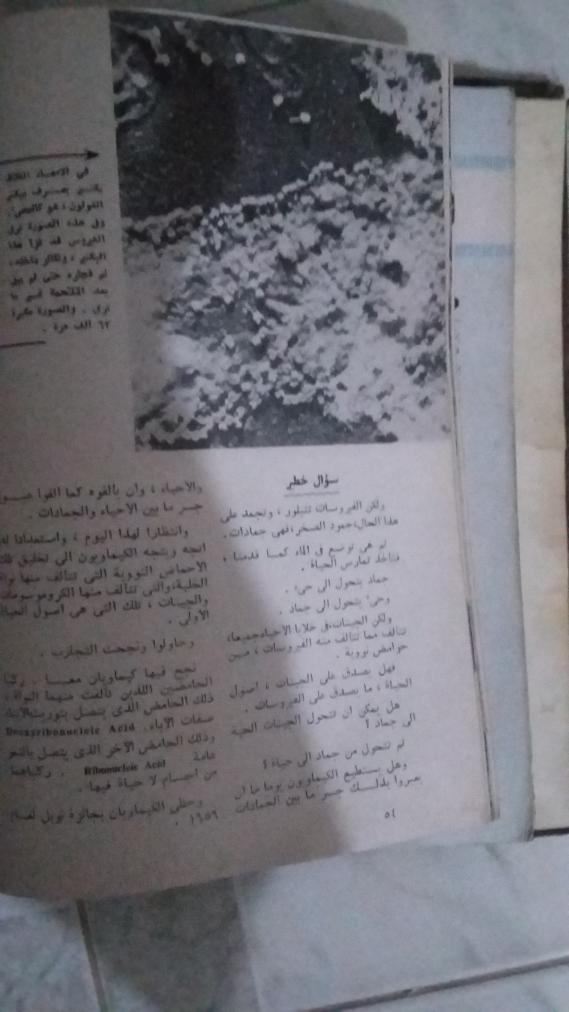 في الامعاء الغلاظ
بكتير يعرف ببكتير
القولون، هو كالعصي.
وفي هذه الصورة ترى
الفيروس قد غزا هذا
البكتير، وتكاثر بداخله،
ثم فجاره حتى لم يبق
بعد الملحمة غير ما
ترى. والصورة مكبرة
٦٢ الف مرة.
سؤال خطر
ولكن الفيروسات تتبلور، وتجمد على
هذا الحال، جمود الصخر، فهي جمادات.
ثم هي توضع في الماء كما قدمنا،
فتأخذ تمارس الحياة.
جماد يتحول الى حيّ.
وحيّ يتحول الى جماد.
ولكن الجينات، في خلايا الاحياء جميعها،
تتألف مما تتألف منه الفيروسات، من
حوامض نووية.
فهل يصدق على الجينات، اصول
الحياة، ما يصدق على الفيروسات.
هل يمكن ان تتحول الجينات الحية
الى جماد؟
ثم تتحول من جماد الى حياة؟
وهل يستطيع الكيماويون يوما ما ان
يعبروا بذلك جسر ما بين الجمادات
والأحياء، وان يالفوه كما الفوا
جسر ما بين الأحياء والجمادات.
وانتظارا لهذا اليوم، واستعدادا له
اتجه ويتجه الكيماويون الى تخليق تلك
الأحماض النووية التي تتألف منها
الخلية، والتي تتألف منها الكروموسومات
والجينات، تلك التي هي اصول الحياة
الأولى.
وحاولوا ونجحت التجارب.
نجح فيها كيماويان معا. ركبا
الحامضين اللذين تألفت منهما النواة،
ذلك الحامض الذي يتصل بتوريث الأبناء
صفات الآباء، Deoxyribonucleic Acid
وذلك الحامض الآخر الذي يتصل
عامة Ribonucleic Acid. ركباهما
من اجسام لا حياة فيها.
وحظي الكيماويان بجائزة نوبل
١٩٥٩.
٥٤